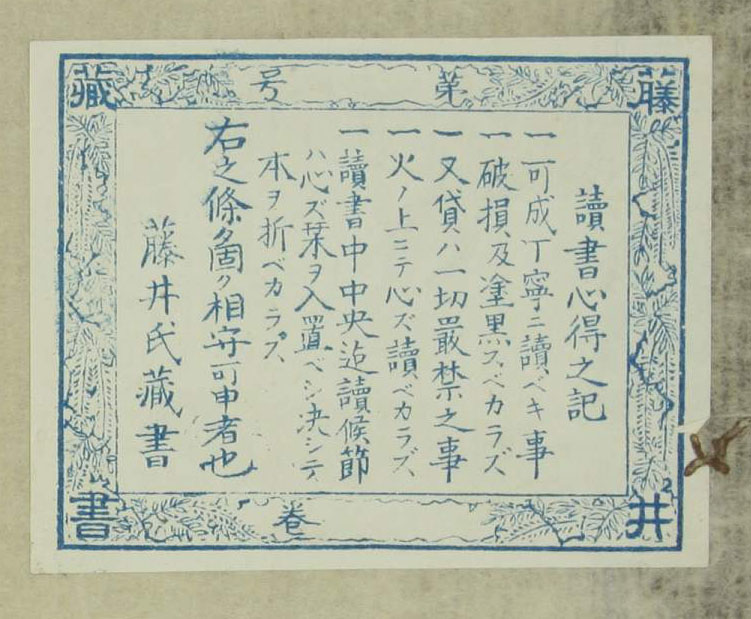 藤井藏書
第 号
卷
讀書心得之記
一可成丁寧ニ讀ベキ事
一破損及塗黒スベカラズ
一又貸ハ一切嚴禁之事
一火ノ上ニテ心ズ讀ベカラズ
一讀書中中央迠讀候節
ハ心ズ栞ヲ入置ベシ決シテ
本ヲ折ベカラズ
右之條箇々相守可申者也
藤井氏藏書